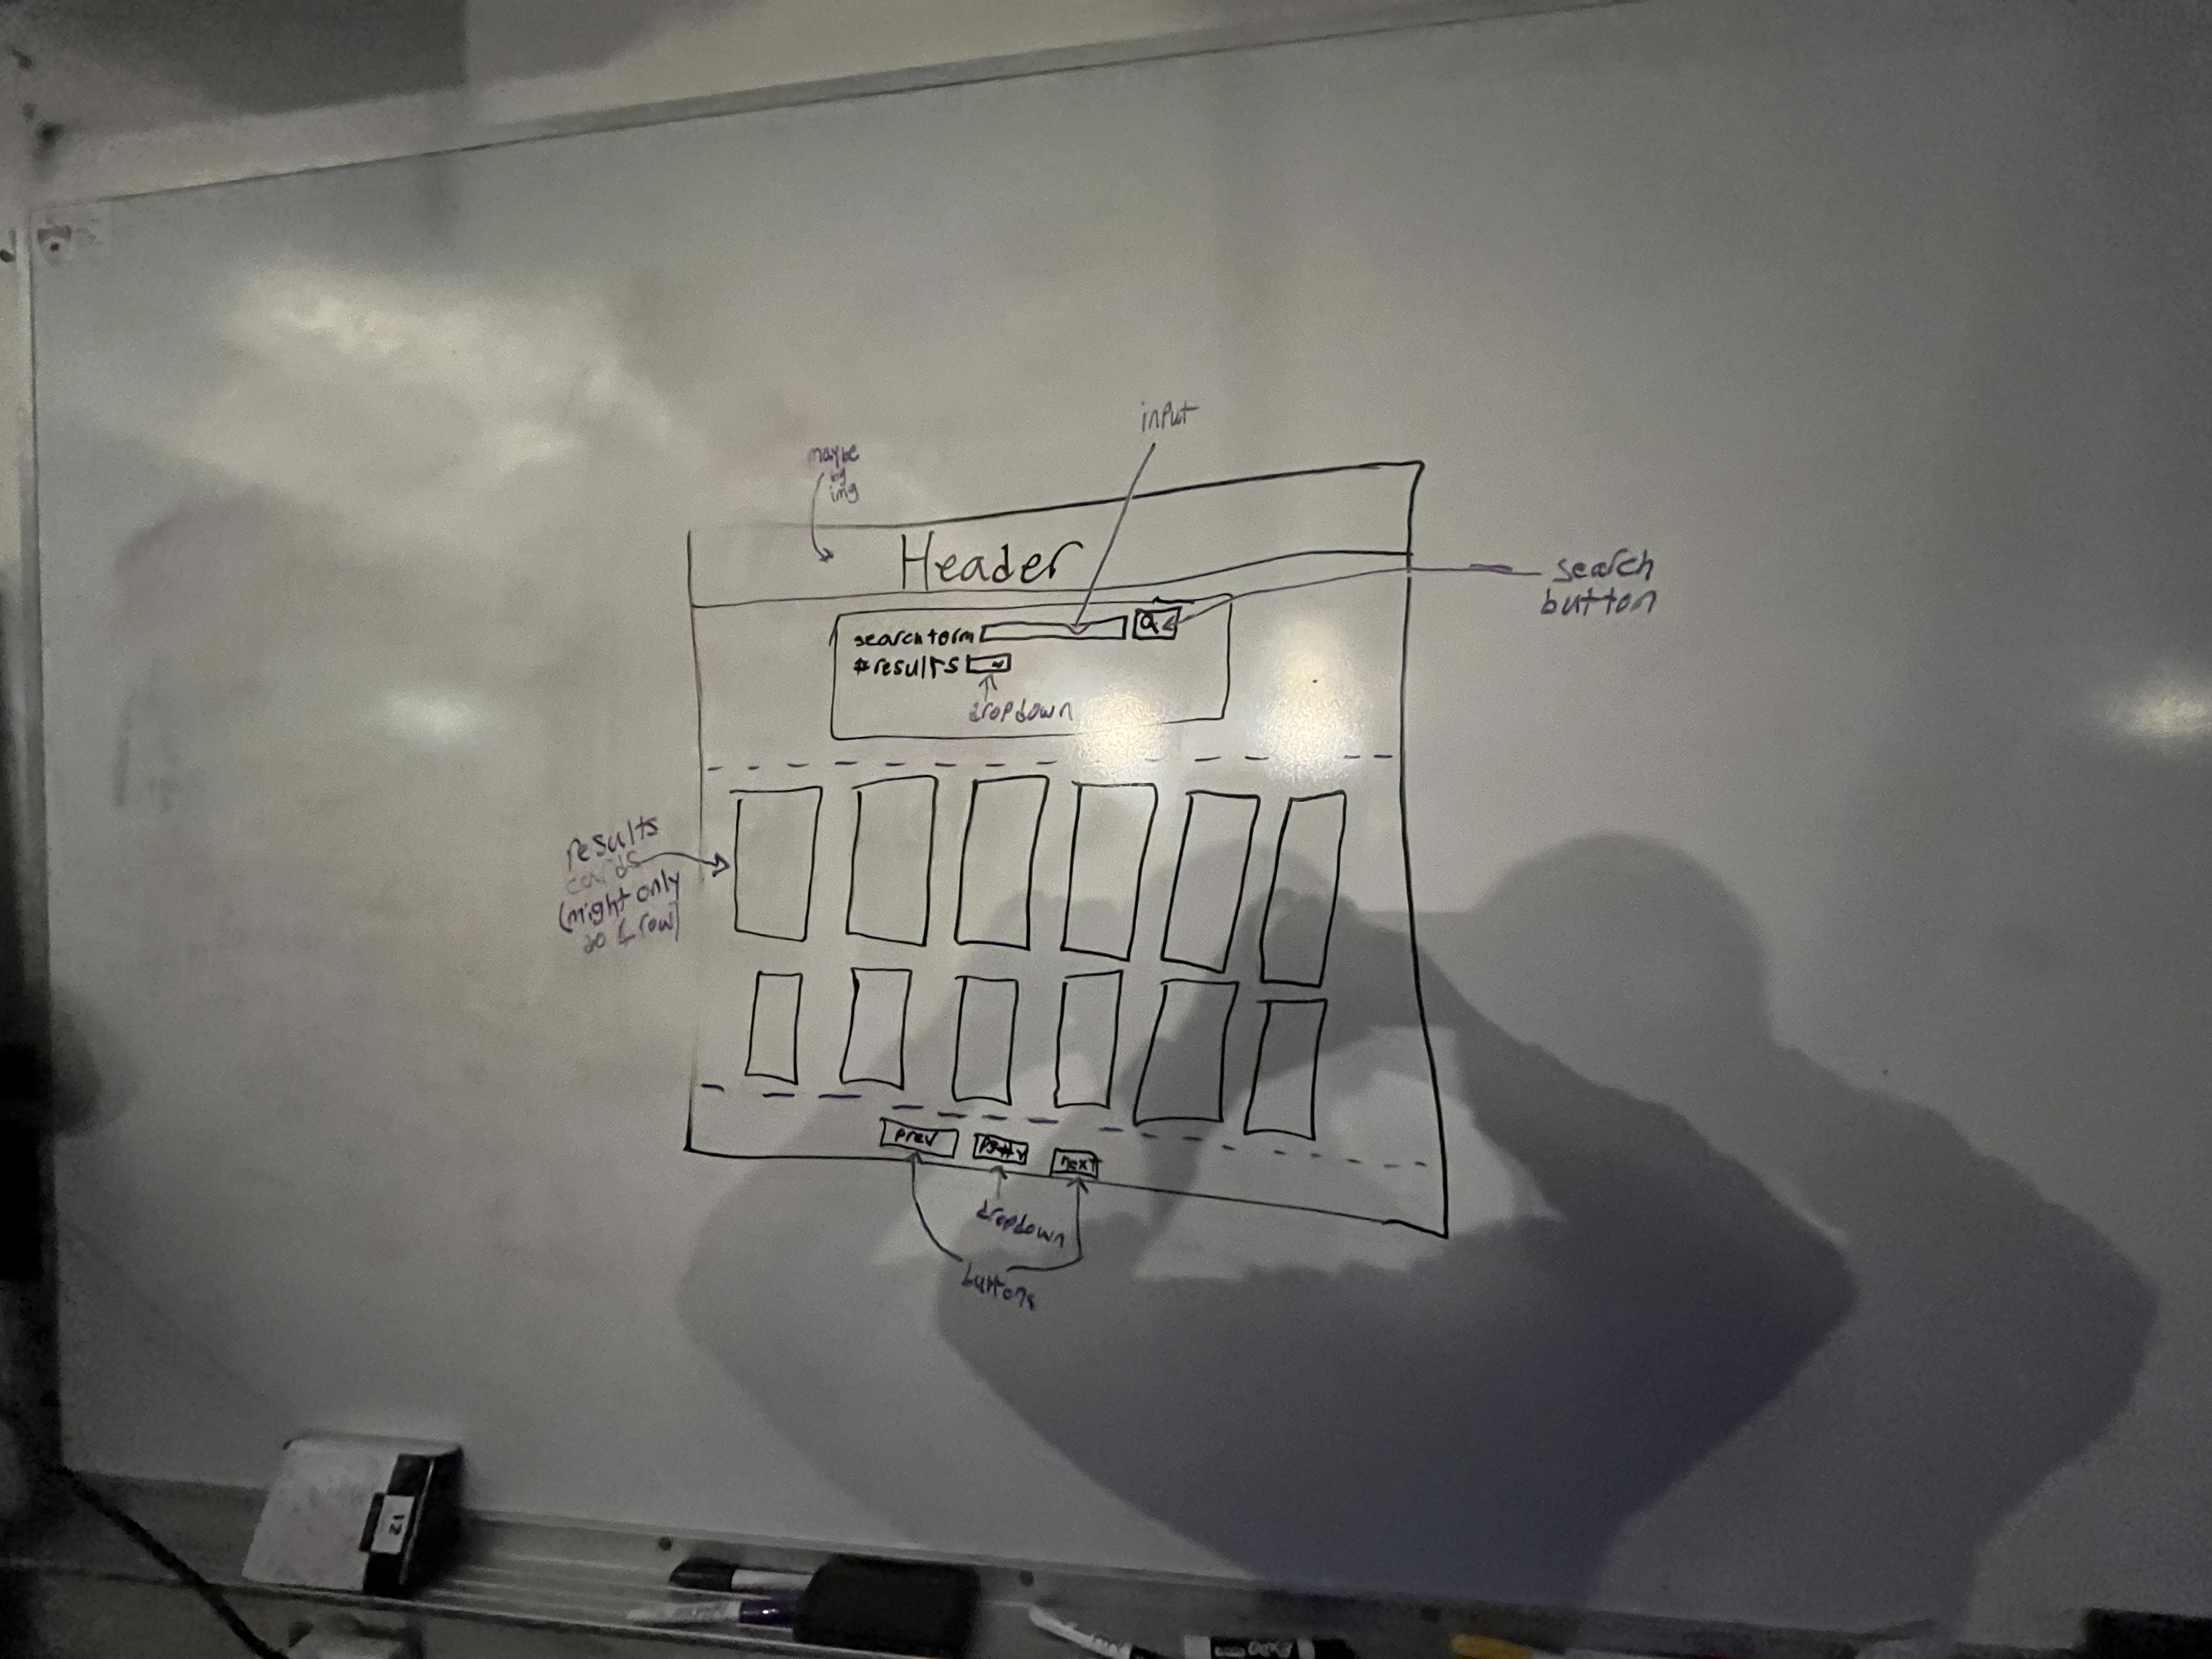 input
maybe
bg
img
Header
search
button
search term
# results
dropdown
results
cards
(might only
do 1 row)
prev
next
dropdown
buttons
12
EXPO